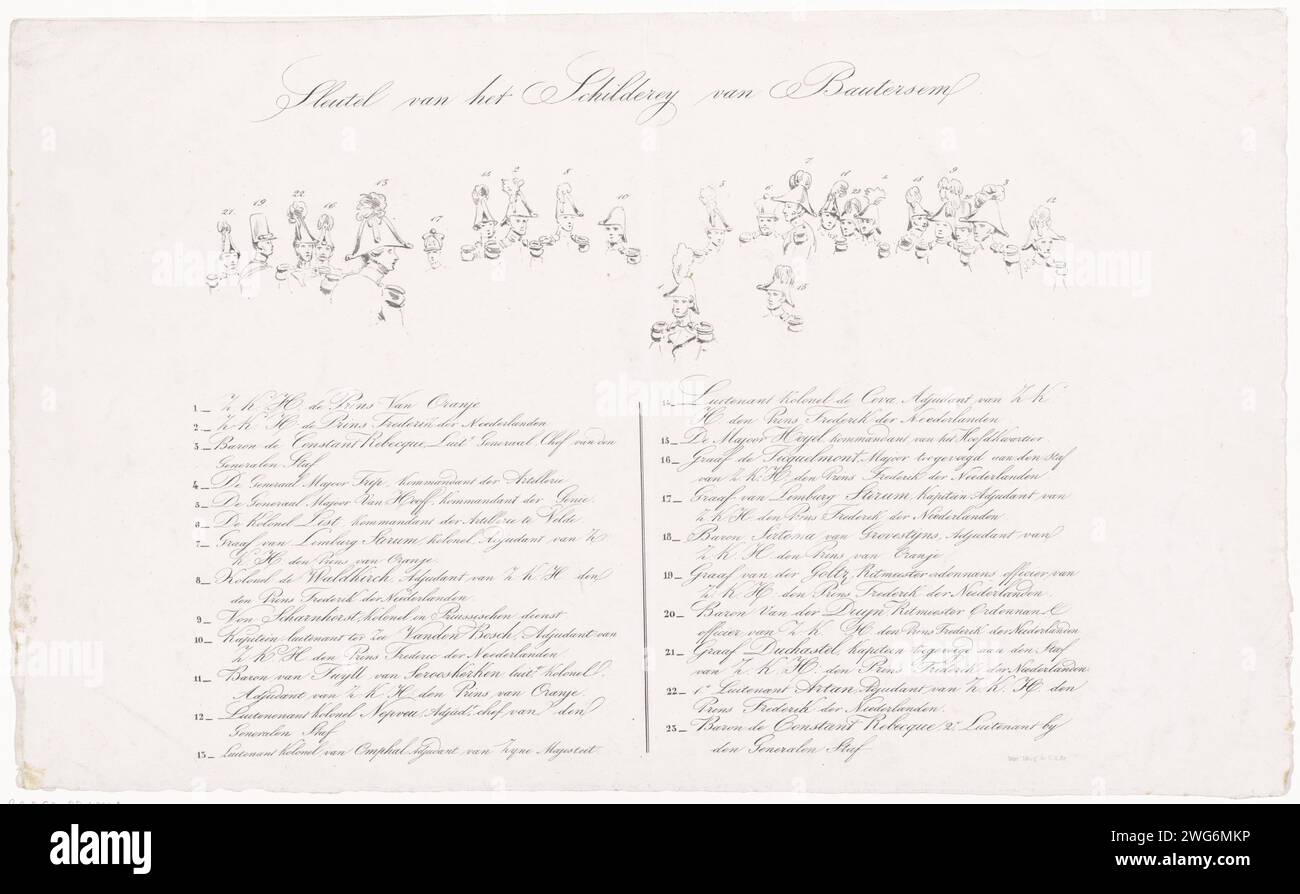 Sleutel van het Schilderey van Bautersem
21 19 22 16 13 17 14 2 8 10 5 6 7 11 23 4 18 9 3 12
1 15
1_ Z. K. H. de Prins Van Oranje
2_ Z. K. H. de Prins Frederik der Neederlanden
3_ Baron de Constant Rebecque, Luit.t Generaal Chef van den
Generalen Staf
4_ De Generaal Majoor Trip, kommandant der Artillerie
5_ De Generaal Majoor Van Hooff, kommandant der Genie
6_ De Kolonel List kommandant der Artillerie te Velde
7_ Graaf van Limburg Stirum Kolonel, Adjudant van Z.
K. H. den Prins van Oranje
8_ Kolonel de Waldkirch Adjudant van Z. K. H. den
den Prins Frederik der Neederlanden
9_ Von Scharnhorst, Kolonel in Pruissischen dienst
10_ Kapitein luitenant ter Zee Vanden Bosch, Adjudant van
Z. K. H. den Prins Frederic der Neederlanden
11_ Baron van Tuyll van Serooskerken luit.t Kolonel.
Adjudant van Z. K. H. den Prins van Oranje
12_ Lieutenenant Kolonel Nepveu, Adjud.t chef van den
Generalen Staf
13_ Luitenant Kolonel van Omphal Adjudant van Zyne Majesteit
14_ Luitenant Kolonel de Ceva Adjudant van Z. K.
H. den Prins Frederik der Neederlanden
15_ De Majoor Heyel kommandant van het Hoofdkwartier
16_ Graaf de Ficquelmont, Major toegevoegd aan den Staf
van Z. K. H. den Prins Frederik der Neederlanden
17_ Graaf van Limburg Stirum Kapitein Adjudant van
Z. K. H. den Prins Frederik der Neederlanden
18_ Baron Sirtema van Grovestyns, Adjudant van
Z. K. H. den Prins van Oranje
19_ Graaf van der Goltz, Ritmeester ordonnans officier van
Z. K. H. den Prins Frederik der Neederlanden
20_ Baron Van der Duyn Ritmeester Ordonnance
officier van Z. K. H. den Prins Frederik der Neederlanden
21_ Graaf Duchastel Kapitein toegevoegd aan den Staf
van Z. K. H. den Prins Frederik der Neederlanden
22_ 1.e Luitenant Artan Adjudant van Z. K. H. den
Prins Frederik der Neederlanden.
23_ Baron de Constant Rebecque 2.e Luitenant by
den Generalen Staf
alamy
Image ID: 2WG6MKP
www.alamy.com